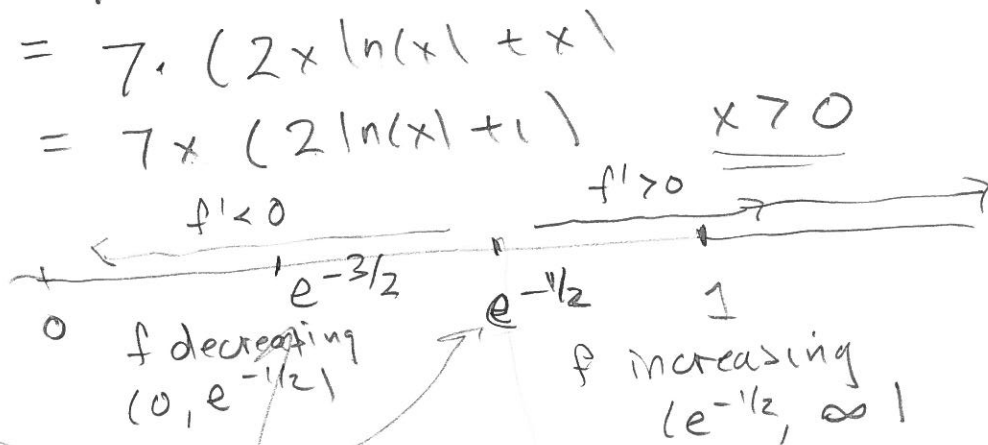 = 7. (2x ln(x) + x)
= 7x (2 ln(x) + 1)
x > 0
f' < 0
f' > 0
0
e^{-3/2}
e^{-1/2}
1
f decreasing
(0, e^{-1/2})
f increasing
(e^{-1/2}, ∞)